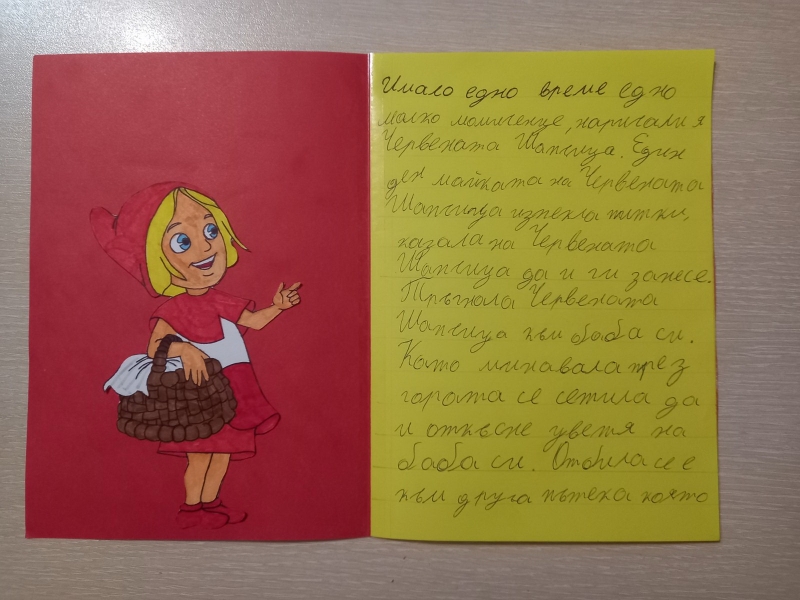 Имало едно време едно
малко момиченце, наричали я
Червената Шапчица. Един
ден майката на Червената
Шапчица изпекла питки,
казала на Червената
Шапчица да и ги занесе.
Тръгнала Червената
Шапчица към баба си.
Като минавала през
гората се сетила да
и откъсне цветя на
баба си. Отбила се е
към друга пътека която